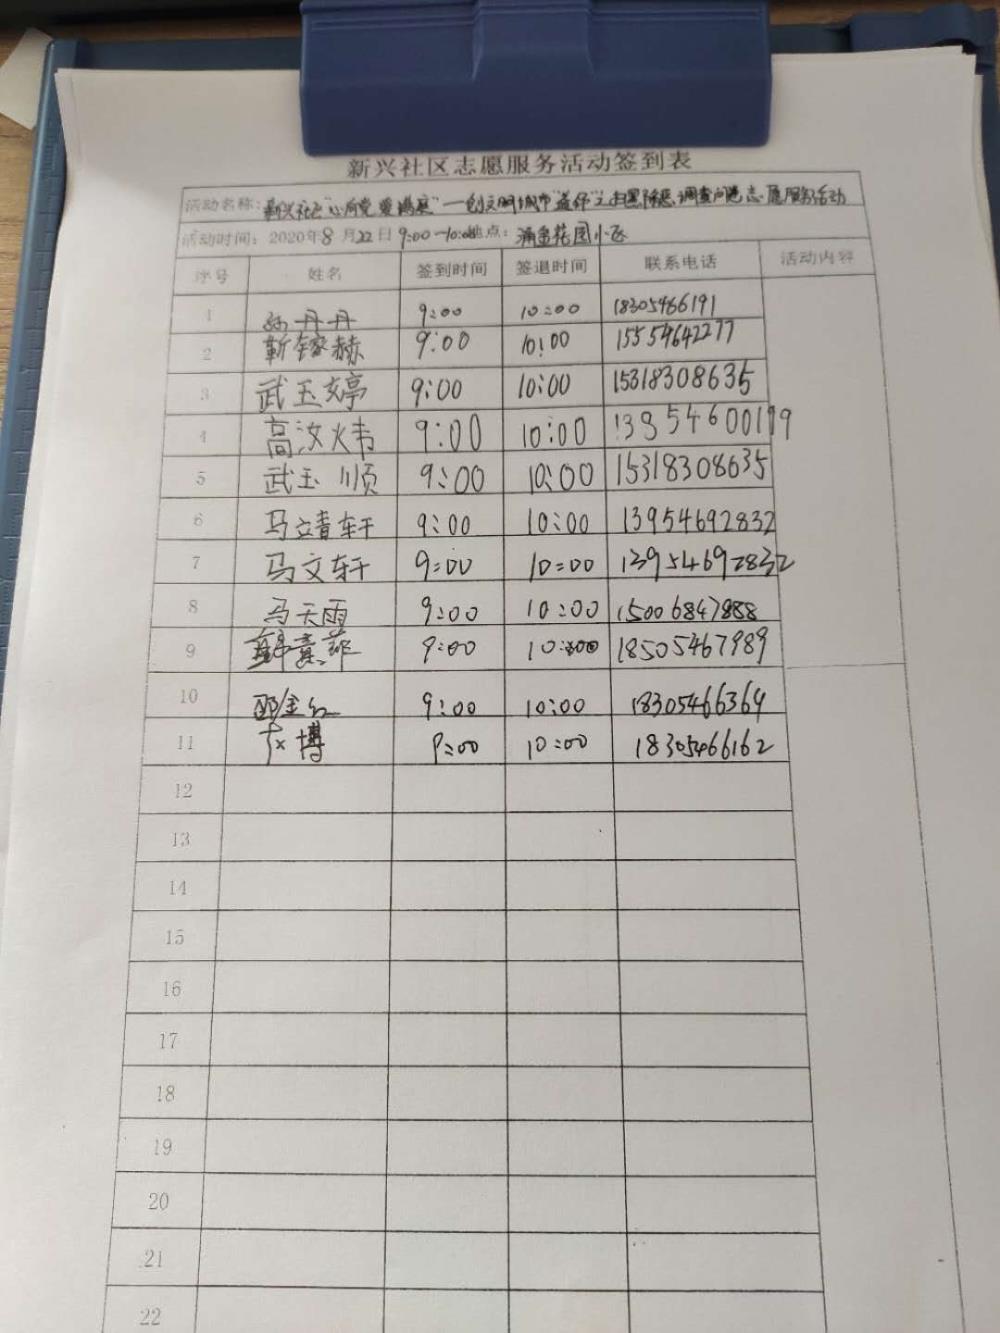 新兴社区志愿服务活动签到表
活动名称：新兴社区"心向党 爱满夏"一创文明城市"益伴"之扫黑除恶,调查问卷志愿服务活动
活动时间：2020年8月22日9:00-10:00地点：涌金花园小区
序号 姓名 签到时间 签退时间 联系电话 活动内容
1 孙丹丹 9:00 10:00 18305466191
2 靳镓赫 9:00 10:00 15554642277
3 武玉婷 9:00 10:00 15318308635
4 高汝炜 9:00 10:00
5 武玉顺 9:00 10:00 15318308635
6 马靖轩 9:00 10:00 13954692832
7 马文轩 9:00 10:00 13954692832
8 马天雨 9:00 10:00 15006847888
9 9:00 10:00 18505467989
10 9:00 10:00 18305466369
11 9:00 10:00 18305466162
12
13
14
15
16
17
18
19
20
21
22